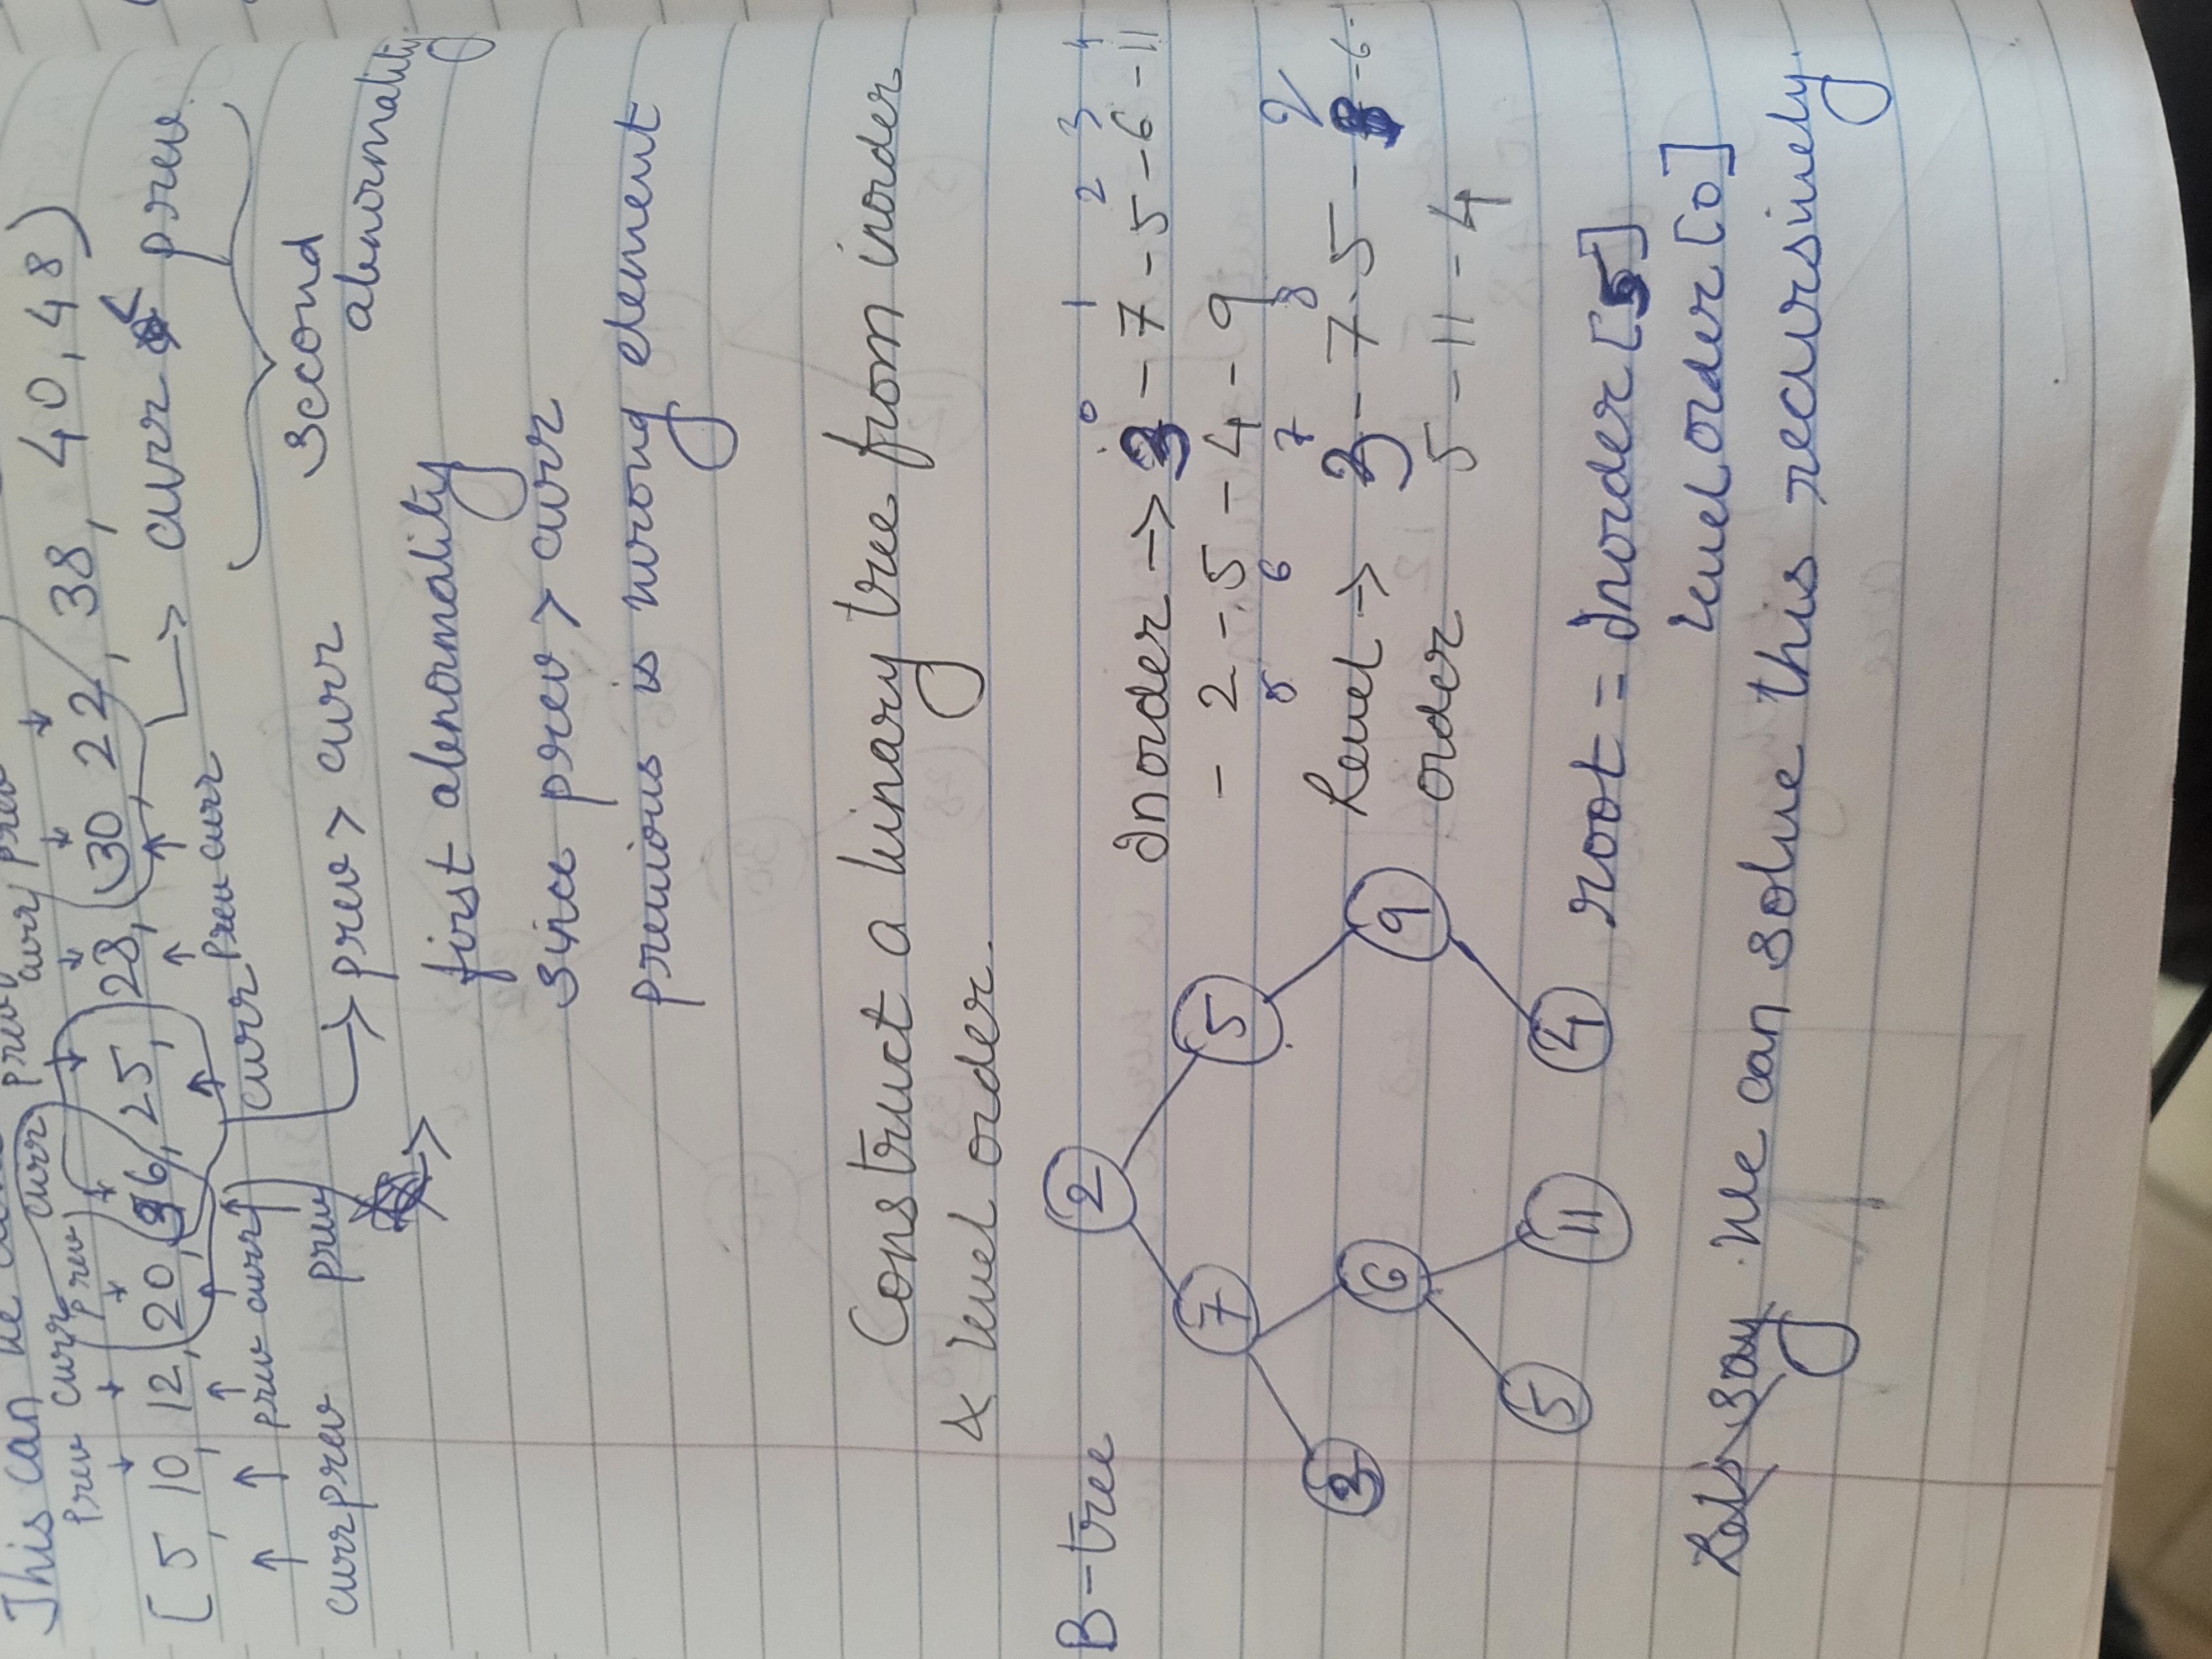 This can be
prev curr prev curr prev curr prev
[5, 10, 12, 20, 36, 25, 28, 30, 22, 38, 40, 48)
curr prev prev curr prev curr prev curr
curr < prev
second
abnormality
prev > curr
first abnormality
since prev > curr
previous is wrong element
Construct a binary tree from inorder
& level order.
B-tree
2
7 5
3 6 9
5 11 4
0 1 2 3 4
Inorder → 3 - 7 - 5 - 6 - 11
- 2 - 5 - 4 - 9
5 6 7 8
Level → - 7 - 5 - - 6 -
order 5 - 11 - 4
root = Inorder [5]
level order [0]
Let's say We can solve this recursively.